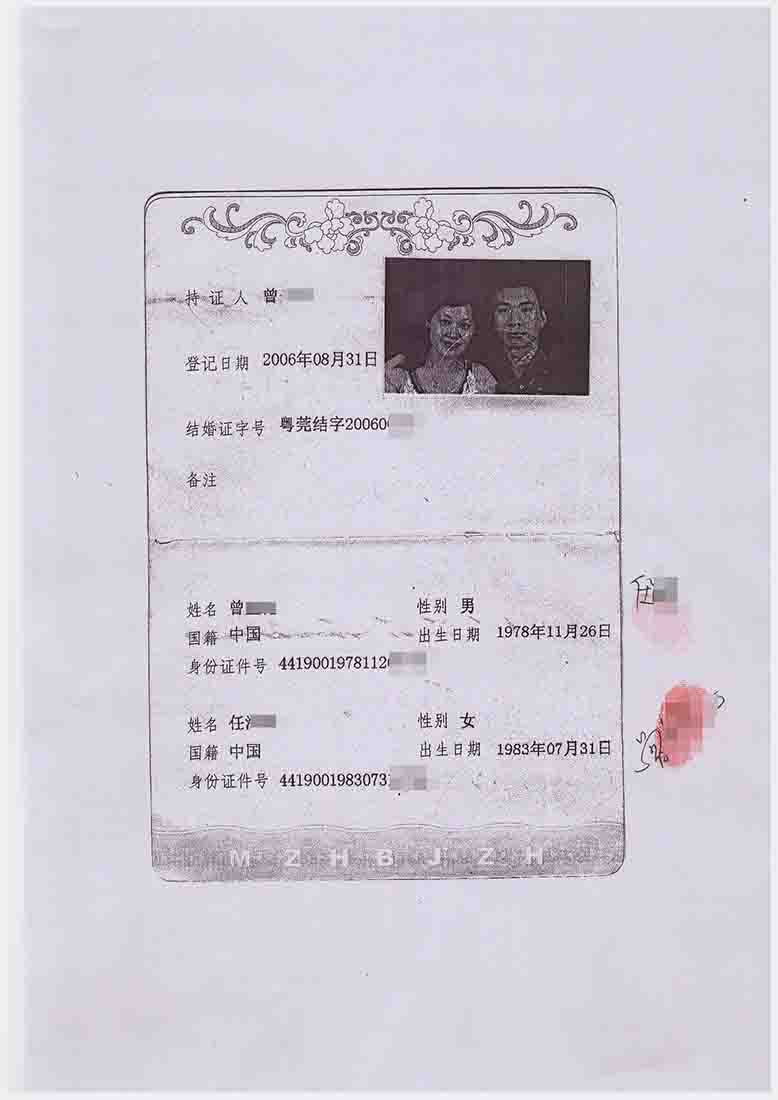 持证人 曾
登记日期 2006年08月31日
结婚证字号 粤莞结字20060
备注
姓名 曾 性别 男
国籍 中国 出生日期 1978年11月26日
身份证件号 44190019781126
姓名 任 性别 女
国籍 中国 出生日期 1983年07月31日
身份证件号 4419001983073
任
MZHBJZH